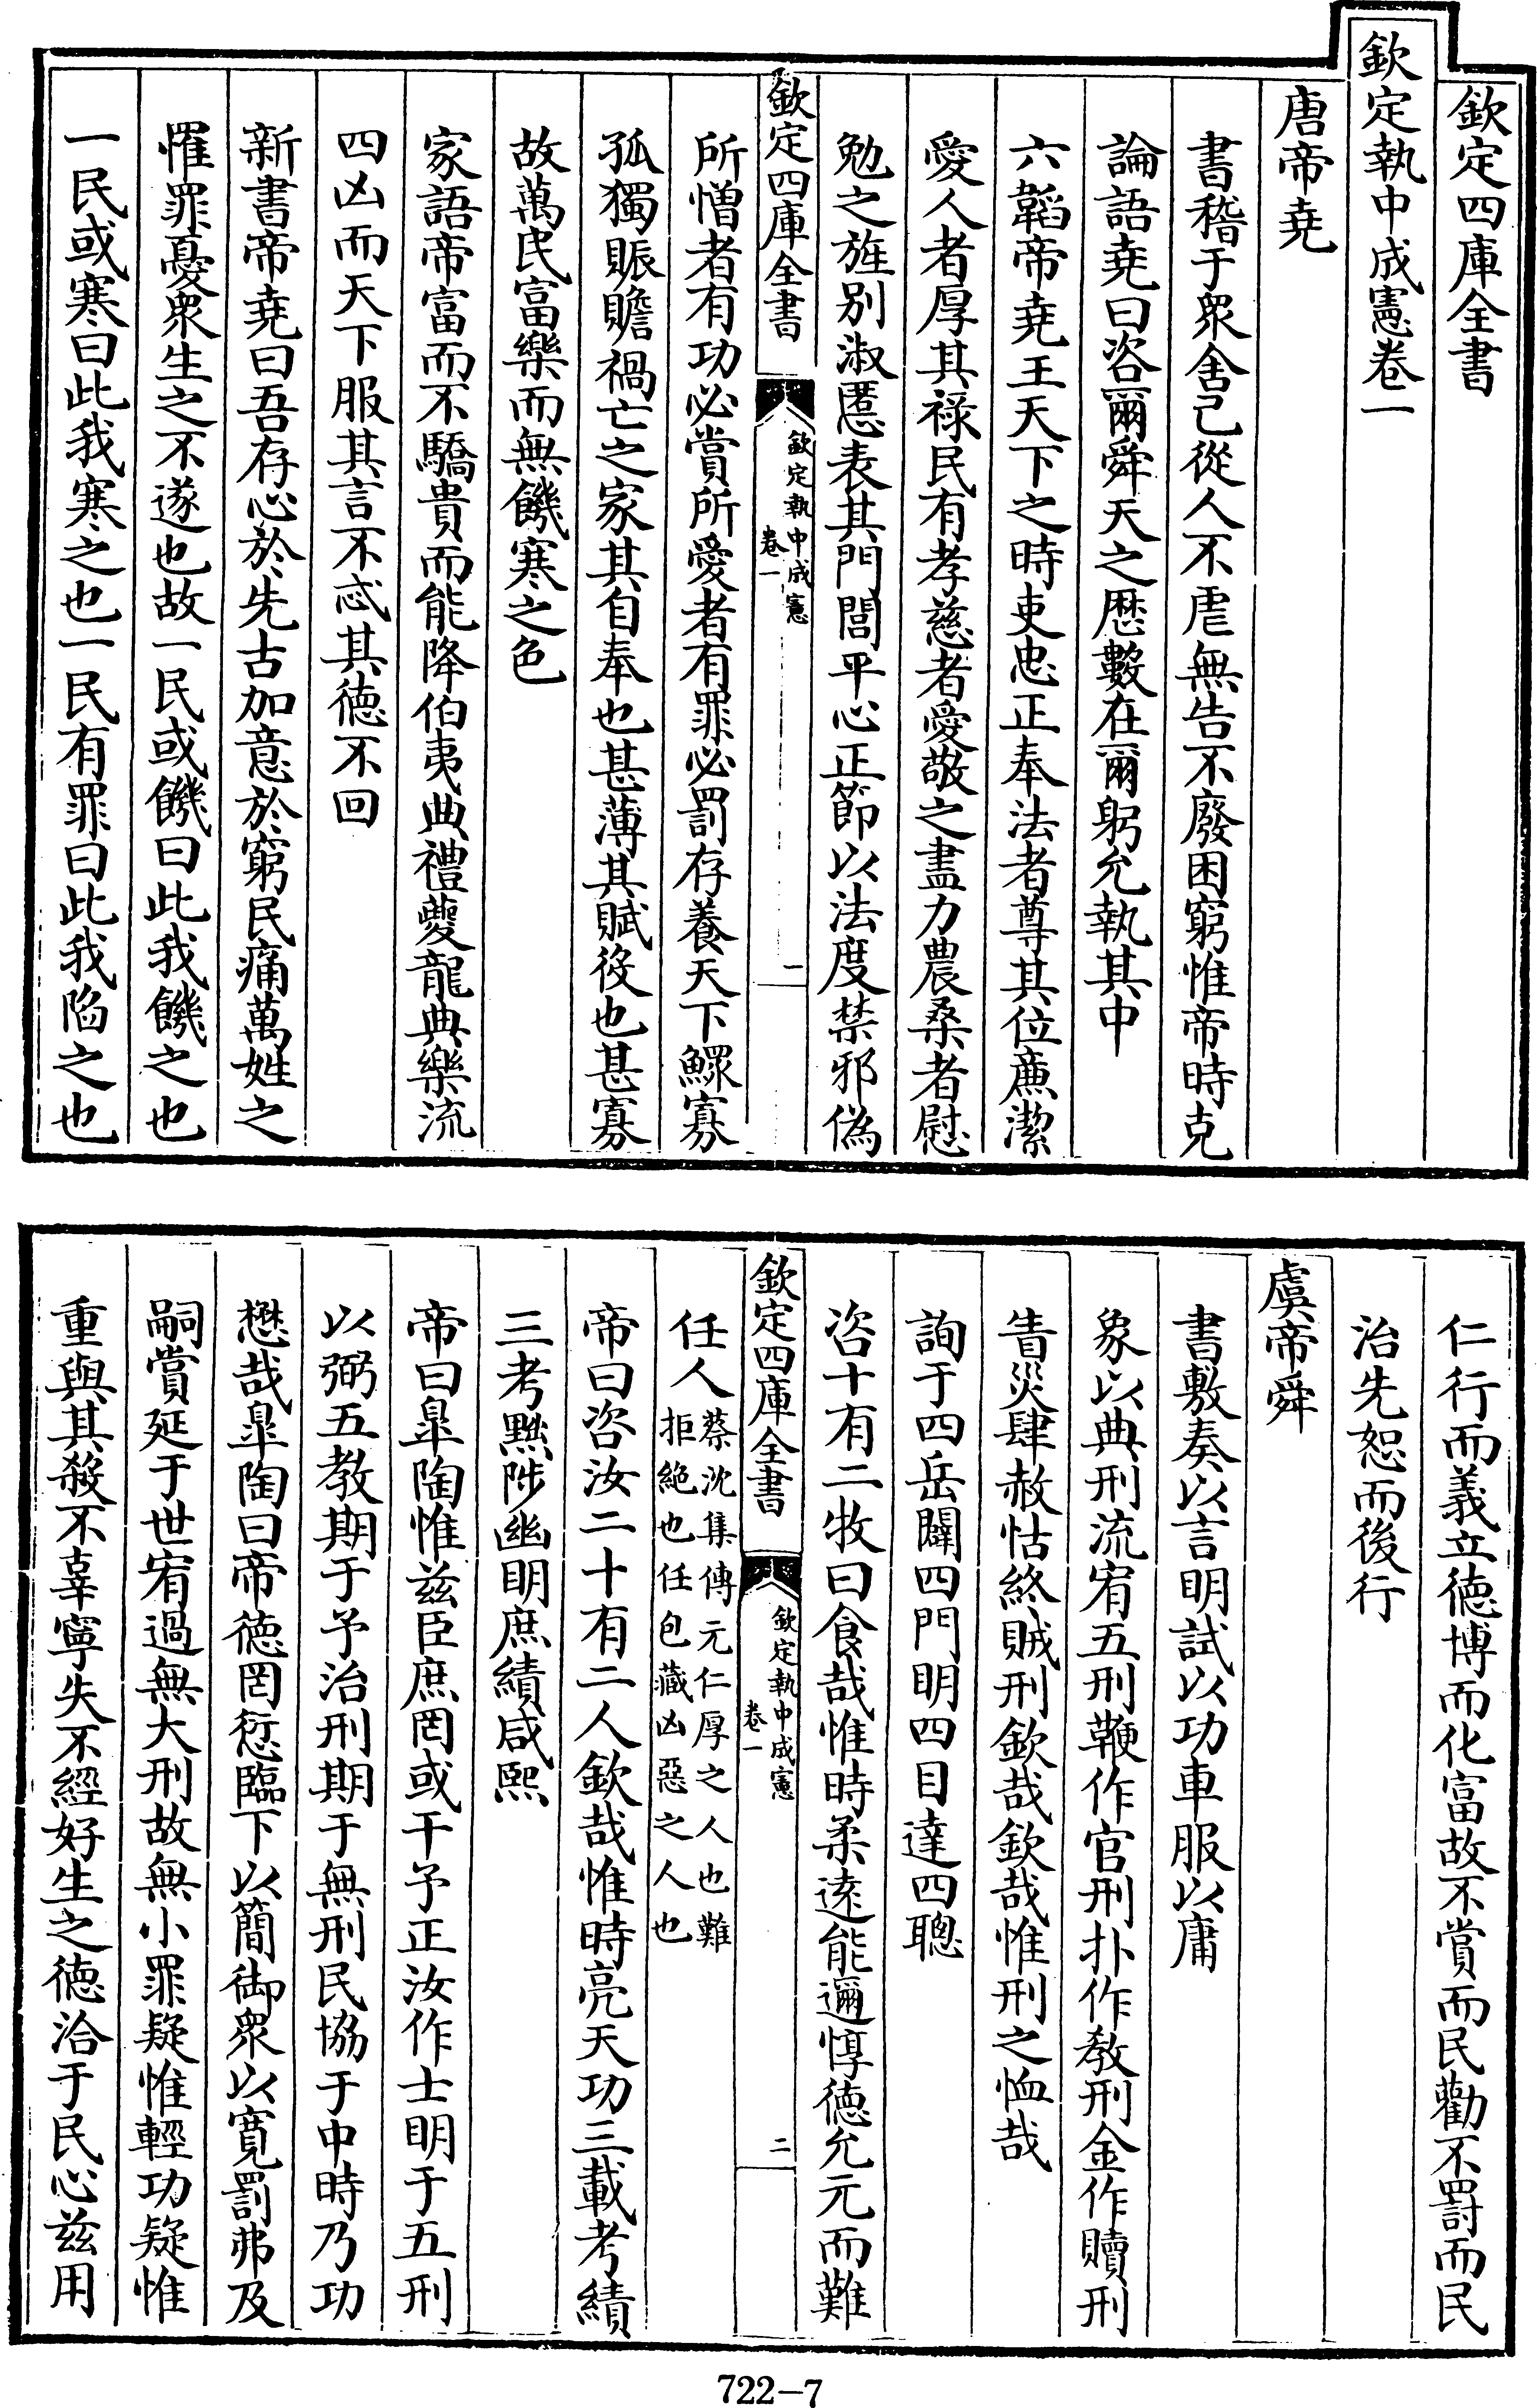 欽定四庫全書
欽定執中成憲卷一
唐帝堯
書稽于衆舍己從人不虐無告不廢困窮惟帝時克
論語堯曰咨爾舜天之厯數在爾躬允執其中
六韜帝堯王天下之時吏忠正奉法者尊其位亷潔
愛人者厚其祿民有孝慈者愛敬之盡力農桑者慰
勉之旌别淑慝表其門閭平心正節以法度禁邪偽
欽定四庫全書
欽定執中成憲
卷一
一
所憎者有功必賞所愛者有罪必罰存養天下鰥寡
孤獨賑贍禍亡之家其自奉也甚薄其賦役也甚寡
故萬民富樂而無饑寒之色
家語帝富而不驕貴而能降伯夷典禮夔龍典樂流
四凶而天下服其言不忒其德不回
新書帝堯曰吾存心於先古加意於窮民痛萬姓之
罹罪憂衆生之不遂也故一民或饑曰此我饑之也
一民或寒曰此我寒之也一民有罪曰此我陷之也
仁行而義立徳博而化富故不賞而民勸不罰而民
治先恕而後行
虞帝舜
書敷奏以言明試以功車服以庸
象以典刑流宥五刑鞭作官刑扑作教刑金作贖刑
眚災肆赦怙終賊刑欽哉欽哉惟刑之恤哉
詢于四岳闢四門明四目達四聰
咨十有二牧曰食哉惟時柔逺能邇惇德允元而難
欽定四庫全書
欽定執中成憲
卷一
二
任人蔡沈集傳元仁厚之人也難
拒絶也任包藏凶惡之人也
帝曰咨汝二十有二人欽哉惟時亮天功三載考績
三考黜陟幽明庶績咸熙
帝曰臯陶惟兹臣庶罔或干予正汝作士明于五刑
以弼五教期于予治刑期于無刑民協于中時乃功
懋哉臯陶曰帝徳罔愆臨下以簡御衆以寛罰弗及
嗣賞延于世宥過無大刑故無小罪疑惟輕功疑惟
重與其殺不辜寧失不經好生之德洽于民心兹用
722-7